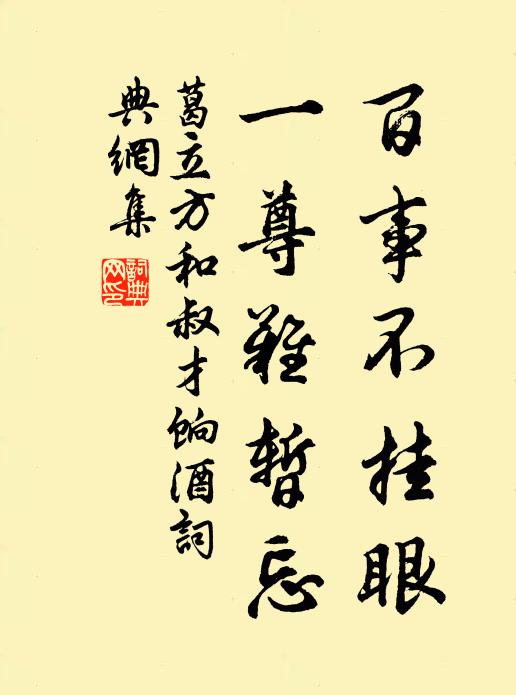 百事不挂眼
一尊難暫忘
葛立方和叔才餉酒詞
典網集
詞典
网印